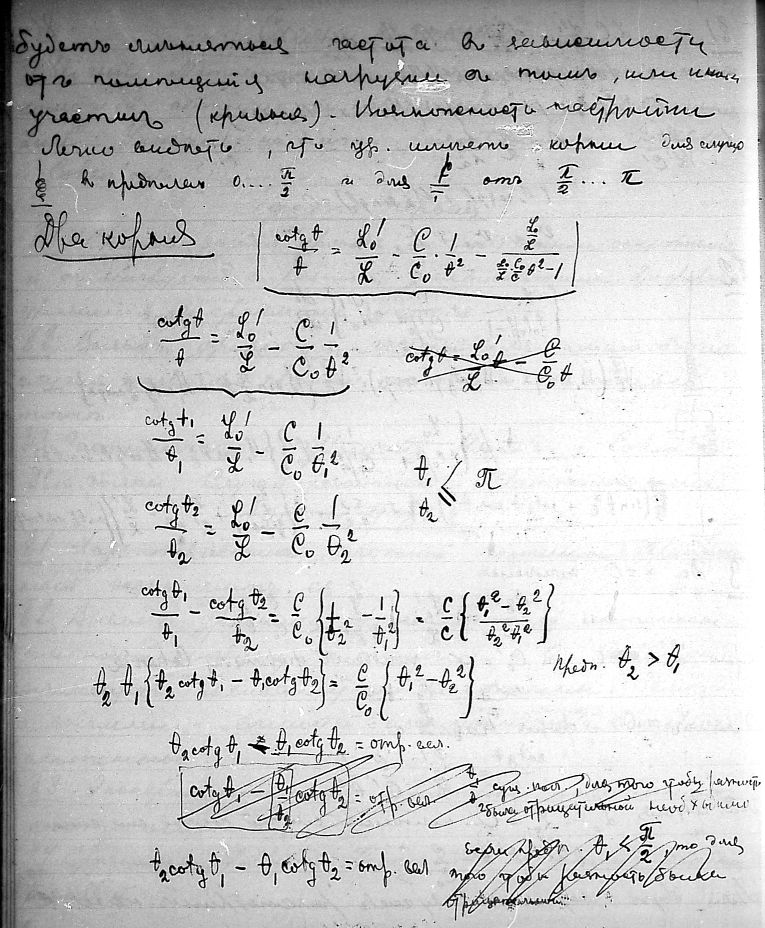 будетъ меняться частота въ зависимости
отъ помещенія нагрузки въ томъ, или иномъ
участкѣ (кривыя). Возможность настройки
Легко видѣть, что ур. имѣетъ корни для случ
въ предѣлах 0....π/2 и для отъ π/2 ... π
Два корня
cotg θ/θ = L₀'/L − C/C₀ · 1/θ² − (L₀/L)/(L₀/L · C₀/C θ² − 1)
cotg θ/θ = L₀'/L − C/C₀ 1/θ²
cotg θ = L₀'/L θ − C/C₀ θ
cotg θ₁/θ₁ = L₀'/L − C/C₀ 1/θ₁²
θ₁ < π
θ₂ ≤
cotg θ₂/θ₂ = L₀'/L − C/C₀ 1/θ₂²
cotg θ₁/θ₁ − cotg θ₂/θ₂ = C/C₀ {1/θ₂² − 1/θ₁²} = C/C {θ₁² − θ₂²/θ₂² θ₁²}
θ₂ θ₁ {θ₂ cotg θ₁ − θ₁ cotg θ₂} = C/C₀ {θ₁² − θ₂²}
предп. θ₂ > θ₁
θ₂ cotg θ₁ − θ₁ cotg θ₂ = отр. вел.
[cotg θ₁ − θ₁/θ₂ cotg θ₂] = отр. вел.
θ₁/θ₂ сущ. пол, для того чтобы разность
была отрицательной необх было
θ₂ cotg θ₁ − θ₁ cotg θ₂ = отр. вел
если предп. θ₁ < π/2, то для
того чтобы разность была
отрицательной